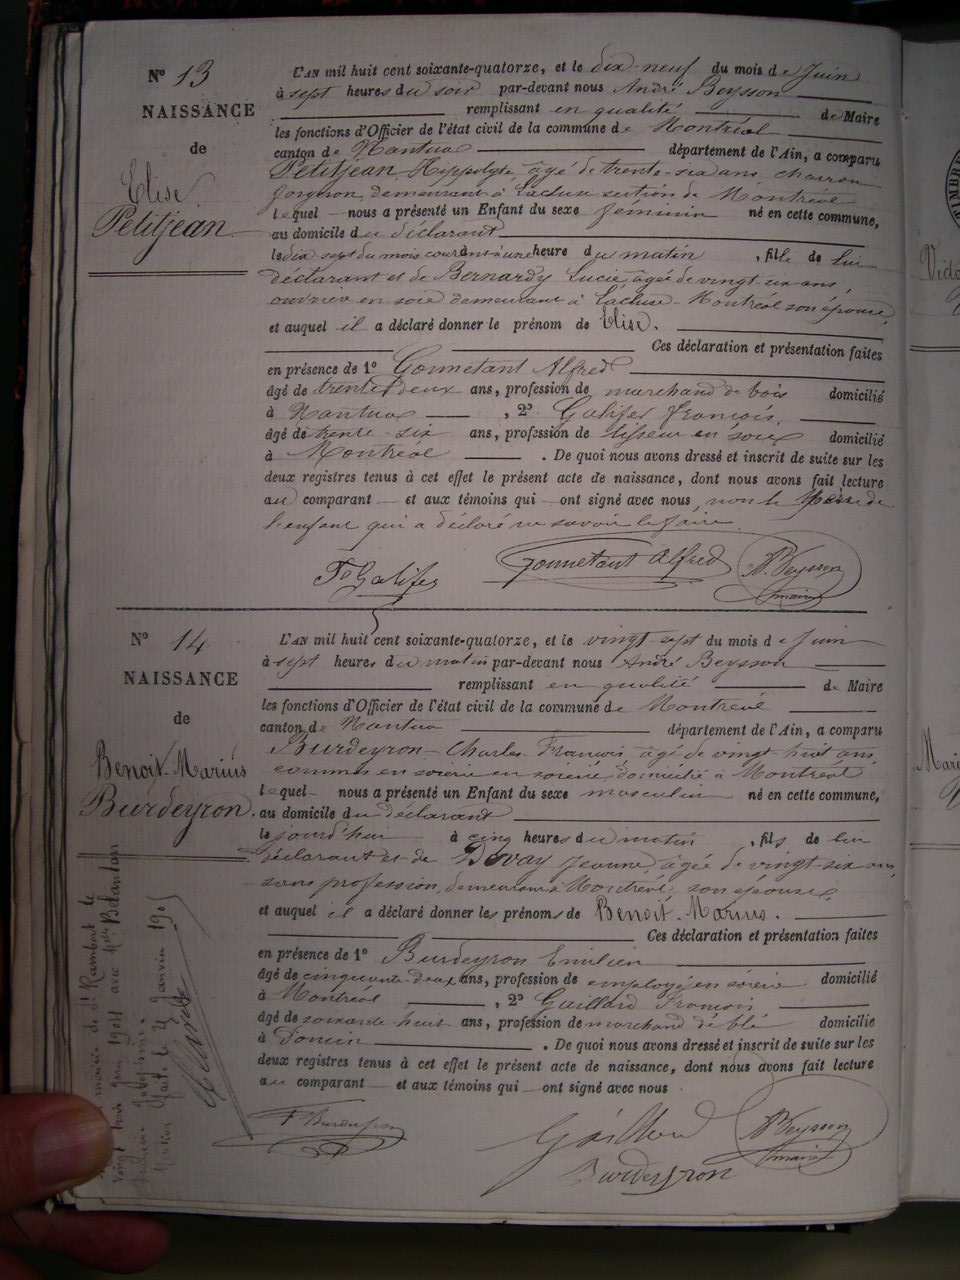 N° 13
NAISSANCE
de
Elise
Petitjean
L'AN mil huit cent soixante-quatorze, et le dix-neuf du mois de Juin
à sept heures du soir par-devant nous André Beysson
remplissant en qualité de Maire
les fonctions d'Officier de l'état civil de la commune de Montréal
canton de Nantua département de l'Ain, a comparu
Petitjean Hippolyte âgé de trente-six ans, charron
forgeron, demeurant à Lacluse section de Montréal
lequel nous a présenté un Enfant du sexe féminin né en cette commune,
au domicile du déclarant
le dix sept du mois courant à une heure du matin, fille de lui
déclarant et de Bernardy Lucie, âgée de vingt-six ans,
ouvrière en soie demeurant à Lacluse-Montréal son épouse,
et auquel il a déclaré donner le prénom de Elise.
Ces déclaration et présentation faites
en présence de 1° Gonnetant Alfred
âgé de trente deux ans, profession de marchand de bois domicilié
à Nantua, 2° Galifer François,
âgé de trente-six ans, profession de tisseur en soie domicilié
à Montréal. De quoi nous avons dressé et inscrit de suite sur les
deux registres tenus à cet effet le présent acte de naissance, dont nous avons fait lecture
au comparant et aux témoins qui ont signé avec nous, non le Père de
l'enfant qui a déclaré ne savoir le faire.
Fs Galifer Gonnetant Alfred A. Beysson
maire
N° 14
NAISSANCE
de
Benoit-Marius
Burdeyron.
L'AN mil huit cent soixante-quatorze, et le vingt-sept du mois de Juin
à sept heures du matin par-devant nous André Beysson
remplissant en qualité de Maire
les fonctions d'Officier de l'état civil de la commune de Montréal
canton de Nantua département de l'Ain, a comparu
Burdeyron Charles François, âgé de vingt huit ans,
commis en soierie en soierie, domicilié à Montréal
lequel nous a présenté un Enfant du sexe masculin né en cette commune,
au domicile du déclarant
le jourd'hui à cinq heures du matin, fils de lui
déclarant et de Devay Jeanne, âgée de vingt-six ans,
sans profession, demeurant à Montréal, son épouse,
et auquel il a déclaré donner les prénoms de Benoit-Marius.
Ces déclaration et présentation faites
en présence de 1° Burdeyron Emilien
âgé de cinquante deux ans, profession de employé en soierie domicilié
à Montréal, 2° Gaillard François
âgé de soixante huit ans, profession de marchand de blé domicilié
à. De quoi nous avons dressé et inscrit de suite sur les
deux registres tenus à cet effet le présent acte de naissance, dont nous avons fait lecture
au comparant et aux témoins qui ont signé avec nous
F. Burdeyron Gaillard A. Beysson
Burdeyron maire
mairie de St Rambert le
vingt trois 1904 avec Melle
fait le 4 Janvier 1905